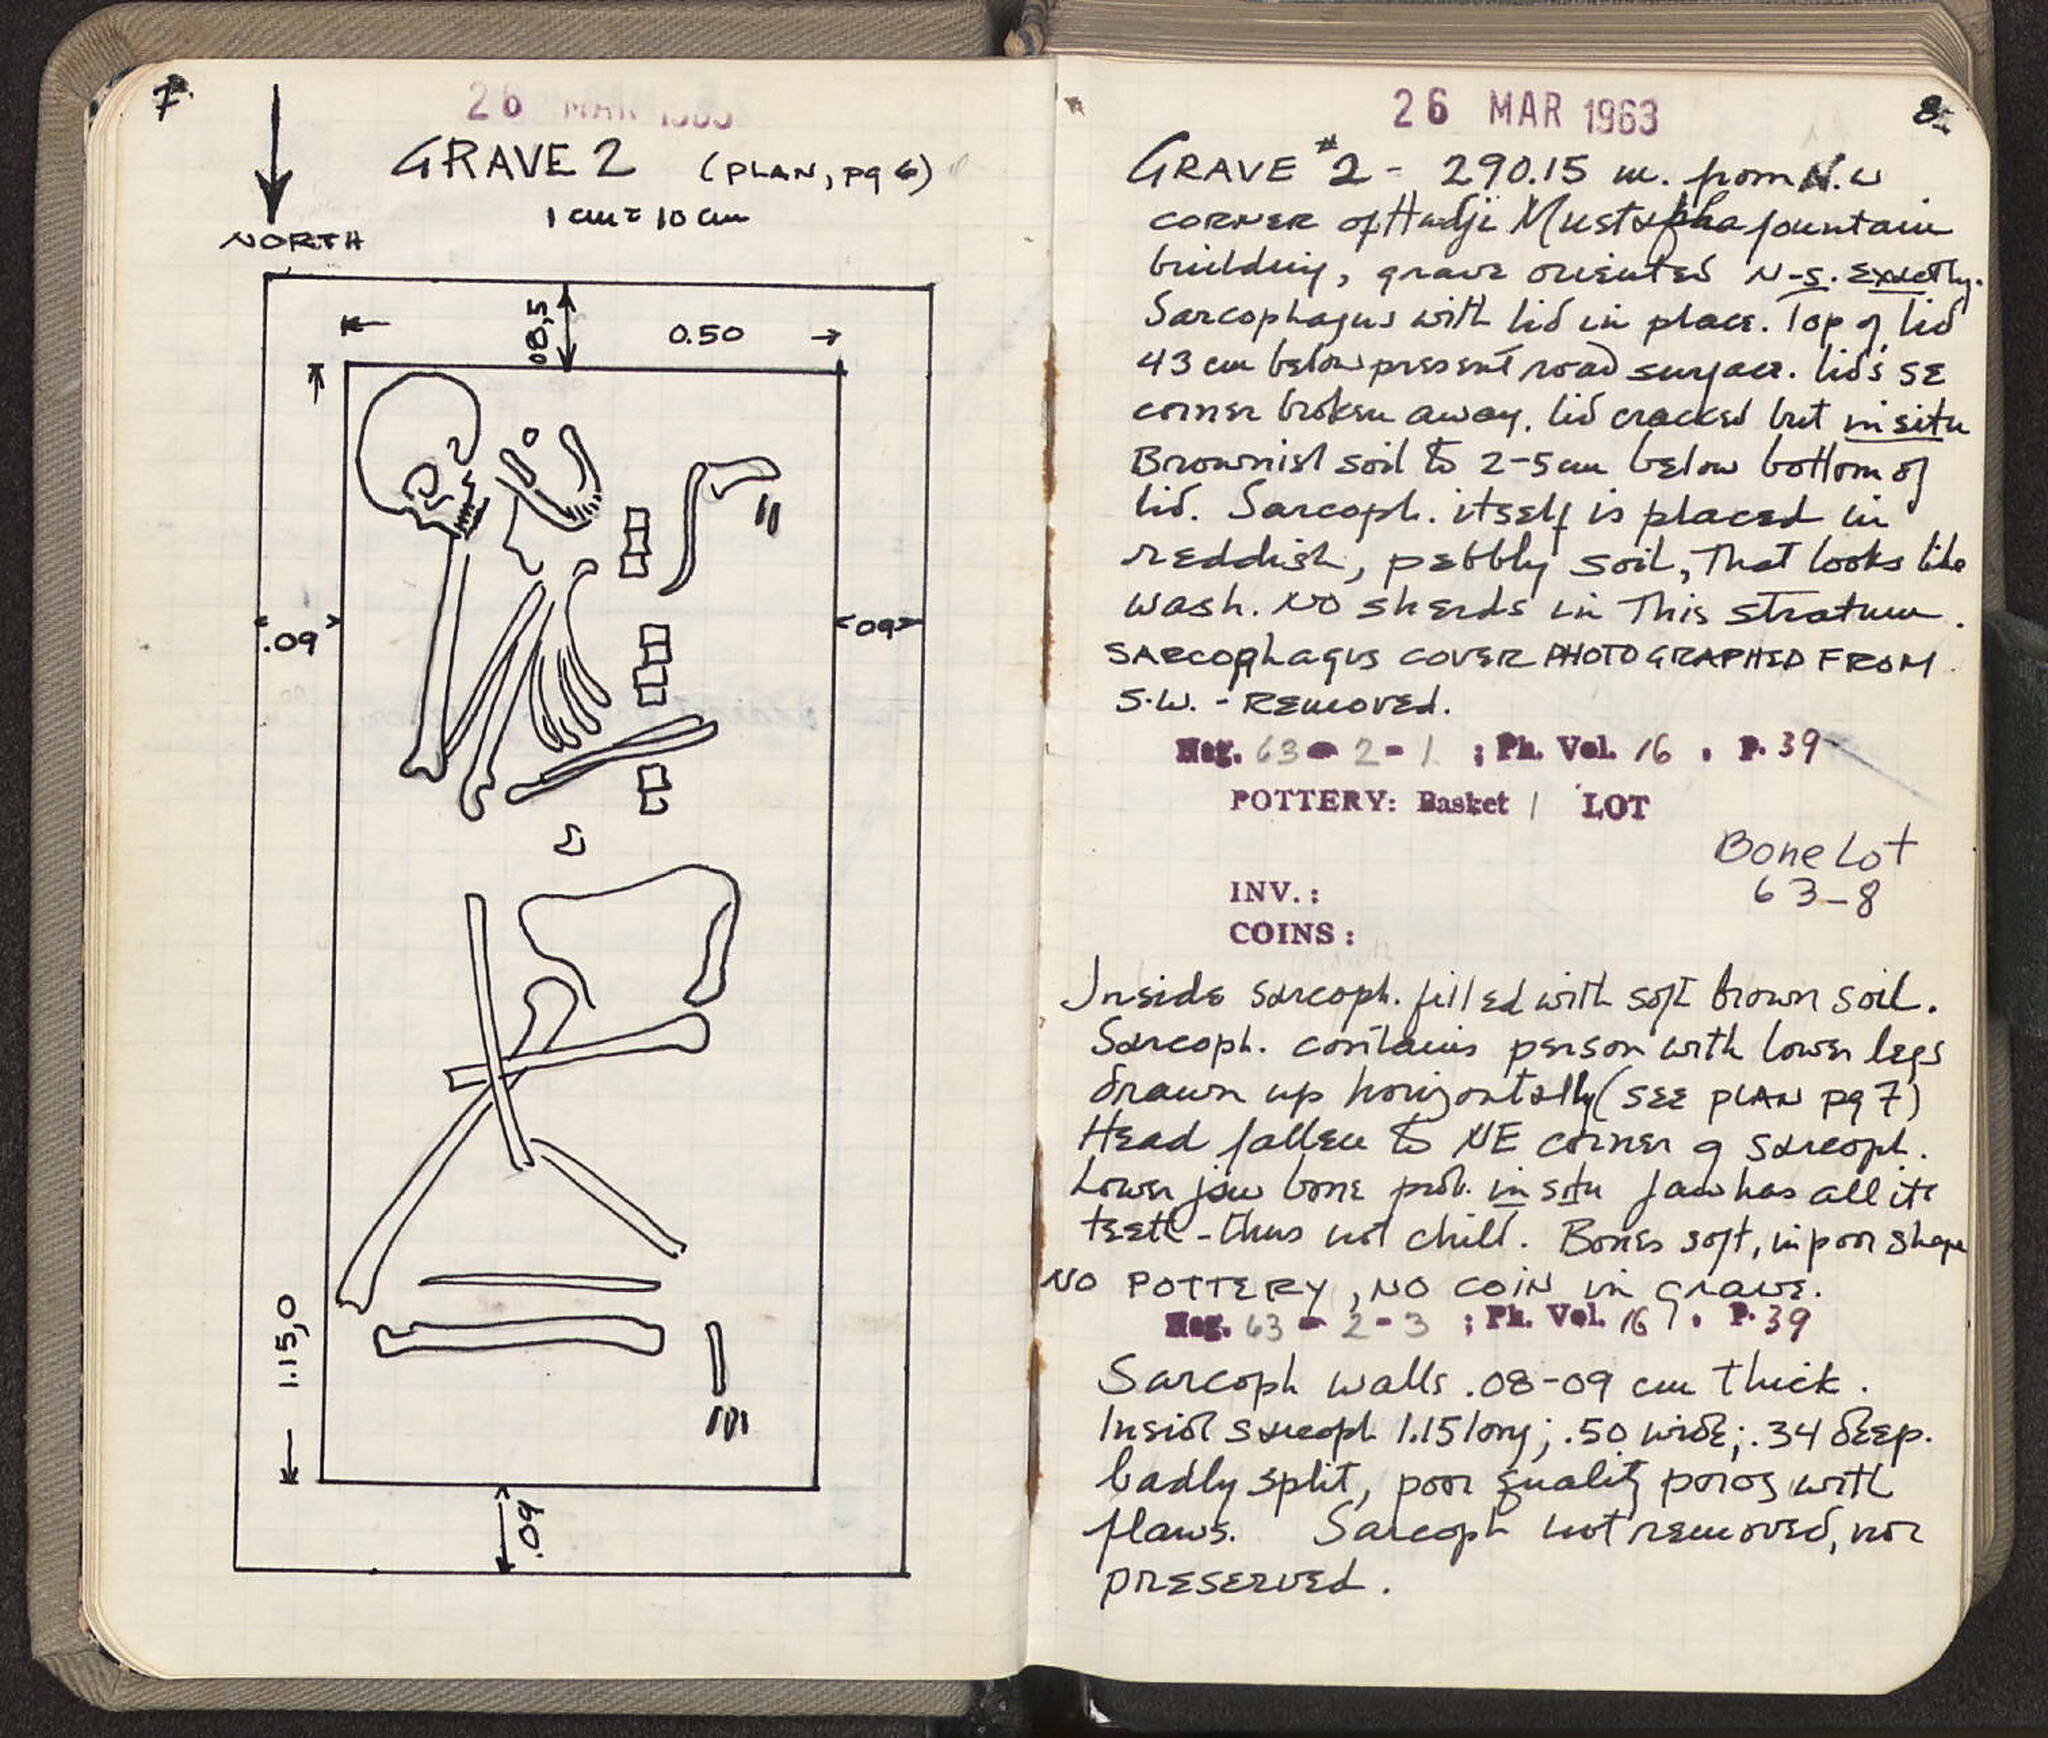 7.
26 MAR 1963
GRAVE 2 (PLAN, pg 6)
1 cm = 10 cm
NORTH
08,5
0.50
.09
.09
1.15,0
.09
26 MAR 1963
8.
GRAVE #2 - 290.15 m. from N.W
CORNER of Hadji Mustapha fountain
building, grave oriented N-S. Exactly.
Sarcophagus with lid in place. Top of lid
43 cm below present road surface. lid's SE
corner broken away. lid cracked but in situ
Brownish soil to 2-5 cm below bottom of
lid. Sarcoph. itself is placed in
reddish, pebbly soil, That looks like
wash. NO sherds in This stratum.
SARCOPHAGUS COVER PHOTOGRAPHED FROM
S.W. - REMOVED.
Neg. 63-2-1 ; Ph. Vol. 16 . P. 39
POTTERY: Basket 1 LOT
Bone Lot
63-8
INV.:
COINS:
Inside sarcoph. filled with soft brown soil.
Sarcoph. contains person with lower legs
drawn up horizontally (SEE PLAN pg 7)
Head fallen to NE corner of sarcoph.
Lower jaw bone prob. in situ Jaw has all its
teeth - thus not child. Bones soft, in poor shape
NO POTTERY, NO COIN in grave.
Neg. 63-2-3 ; Ph. Vol. 16 . P. 39
Sarcoph walls .08-09 cm thick.
Inside sarcoph 1.15 long; .50 wide; .34 deep.
badly split, poor quality poros with
flaws. Sarcoph not removed, nor
preserved.